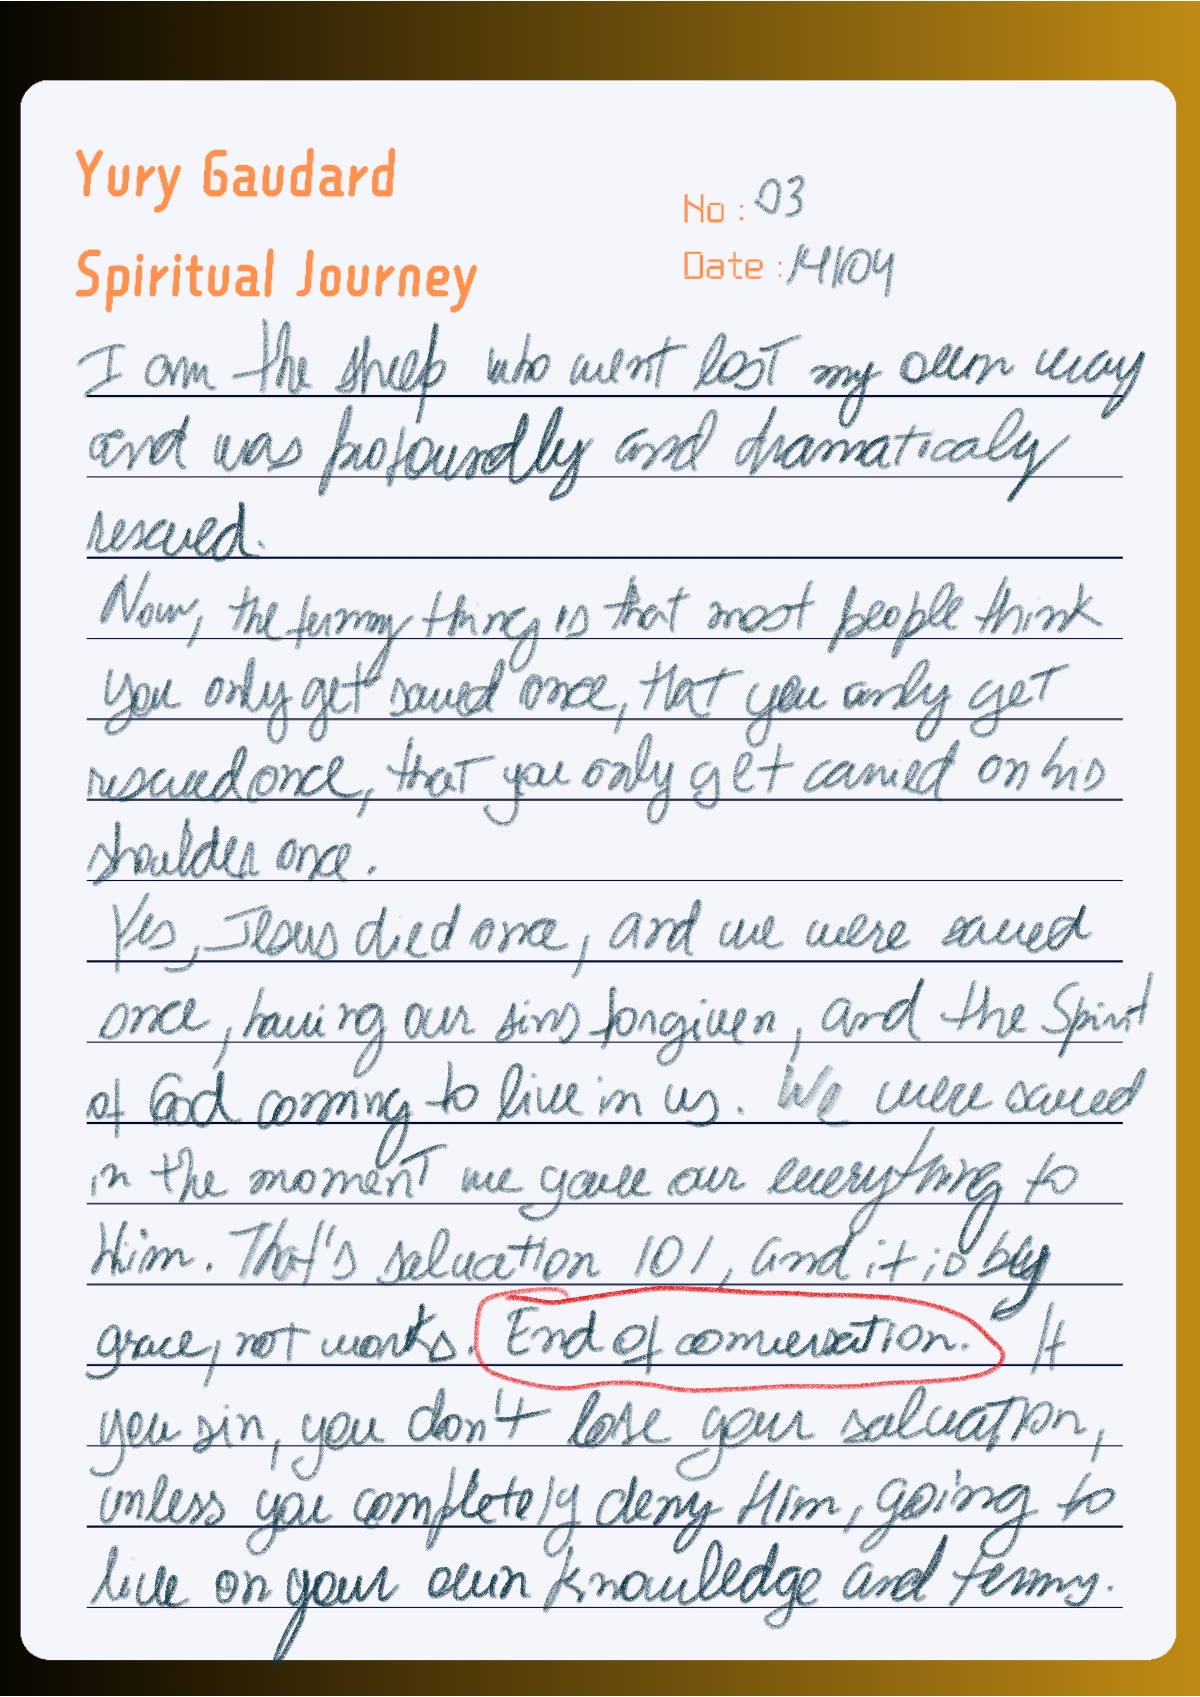 Yury Gaudard
Spiritual Journey
No : 03
Date : 14/04
I am the sheep who went lost my own way
and was profoundly and dramaticaly
rescued.
Now, the funny thing is that most people think
you only get saved once, that you only get
rescued once, that you only get carried on his
shoulder once.
Yes, Jesus died once, and we were saved
once, having our sins forgiven, and the Spirit
of God coming to live in us. We were saved
in the moment we gave our everything to
Him. That's salvation 101, and it is by
grace, not works. End of conversation. If
you sin, you don't lose your salvation,
unless you completely deny Him, going to
live on your own knowledge and terms.